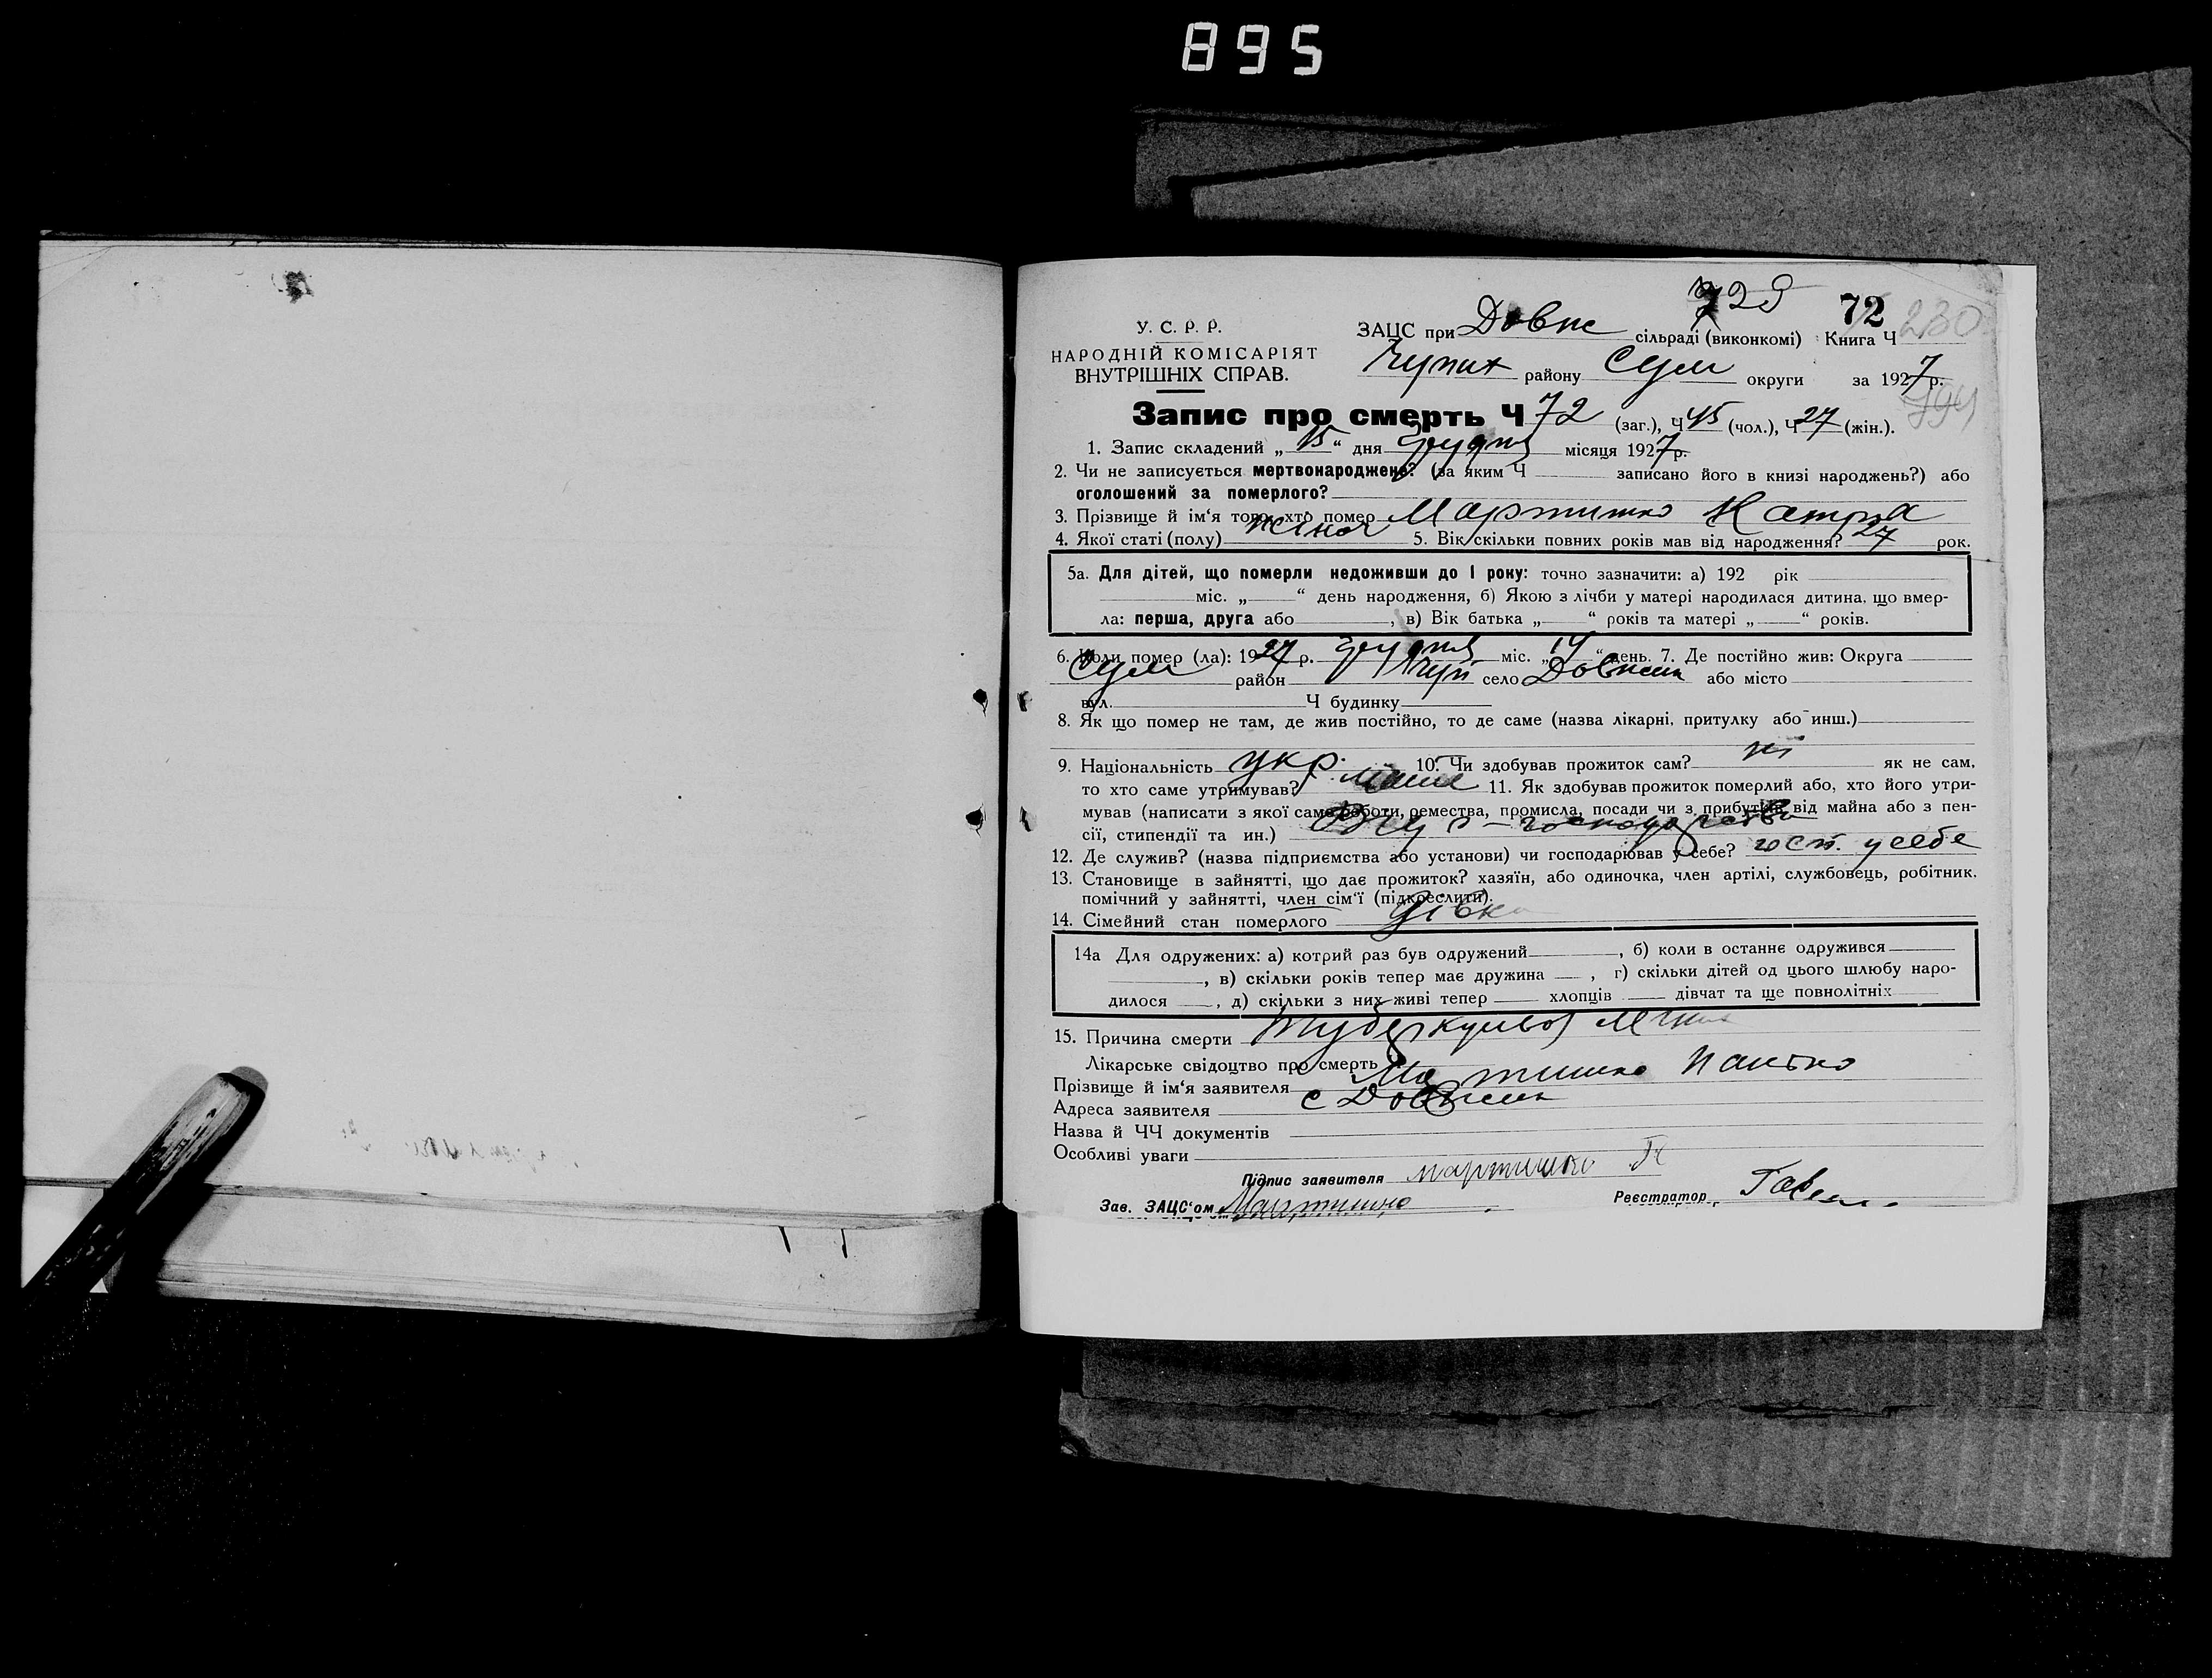 895
229 72 230
У. С. Р. Р. ЗАЦС при Довж сільраді (виконкомі) Книга Ч
НАРОДНІЙ КОМІСАРІЯТ
ВНУТРІШНІХ СПРАВ. Чупих району Сум округи за 1927 р.
Запис про смерть Ч 72 (заг.), Ч 45 (чол.), Ч 27 (жін.).
1. Запис складений „15“ дня грудня місяця 1927 р.
2. Чи не записується мертвонароджене? (за яким Ч записано його в книзі народжень?) або
оголошений за померлого?
3. Прізвище й ім‘я того, хто помер Мартишко Катря
4. Якої статі (полу) жіноч 5. Вік скільки повних років мав від народження? 27 рок.
5а. Для дітей, що померли недоживши до 1 року: точно зазначити: а) 192 рік
міс. „ “ день народження, б) Якою з лічби у матері народилася дитина, що вмер-
ла: перша, друга або , в) Вік батька „ “ років та матері „ “ років.
6. Коли помер (ла): 1927 р. грудня міс. „14“ день. 7. Де постійно жив: Округа
Сум район Чуп село Довжик або місто
вул. Ч будинку
8. Як що помер не там, де жив постійно, то де саме (назва лікарні, притулку або инш.)
9. Національність укр. 10. Чи здобував прожиток сам? ні як не сам,
то хто саме утримував? 11. Як здобував прожиток померлий або, хто його утри-
мував (написати з якої саме роботи, ремества, промисла, посади чи з прибутків від майна або з пен-
сії, стипендії та ин.) господарства
12. Де служив? (назва підприємства або установи) чи господарював у себе? госп. у себе
13. Становище в зайнятті, що дає прожиток? хазяїн, або одиночка, член артілі, службовець, робітник,
помічний у зайнятті, член сім‘ї (підкреслити).
14. Сімейний стан померлого дівка
14а Для одружених: а) котрий раз був одружений , б) коли в останнє одружився
, в) скільки років тепер має дружина , г) скільки дітей од цього шлюбу наро-
дилося , д) скільки з них живі тепер хлопців дівчат та ще повнолітніх
15. Причина смерти туберкульоз
Лікарське свідоцтво про смерть
Прізвище й ім‘я заявителя Мартишко
Адреса заявителя с Довжик
Назва й ЧЧ документів
Особливі уваги
Підпис заявителя мартишко
Зав. ЗАЦС‘ом Мартишко Реєстратор